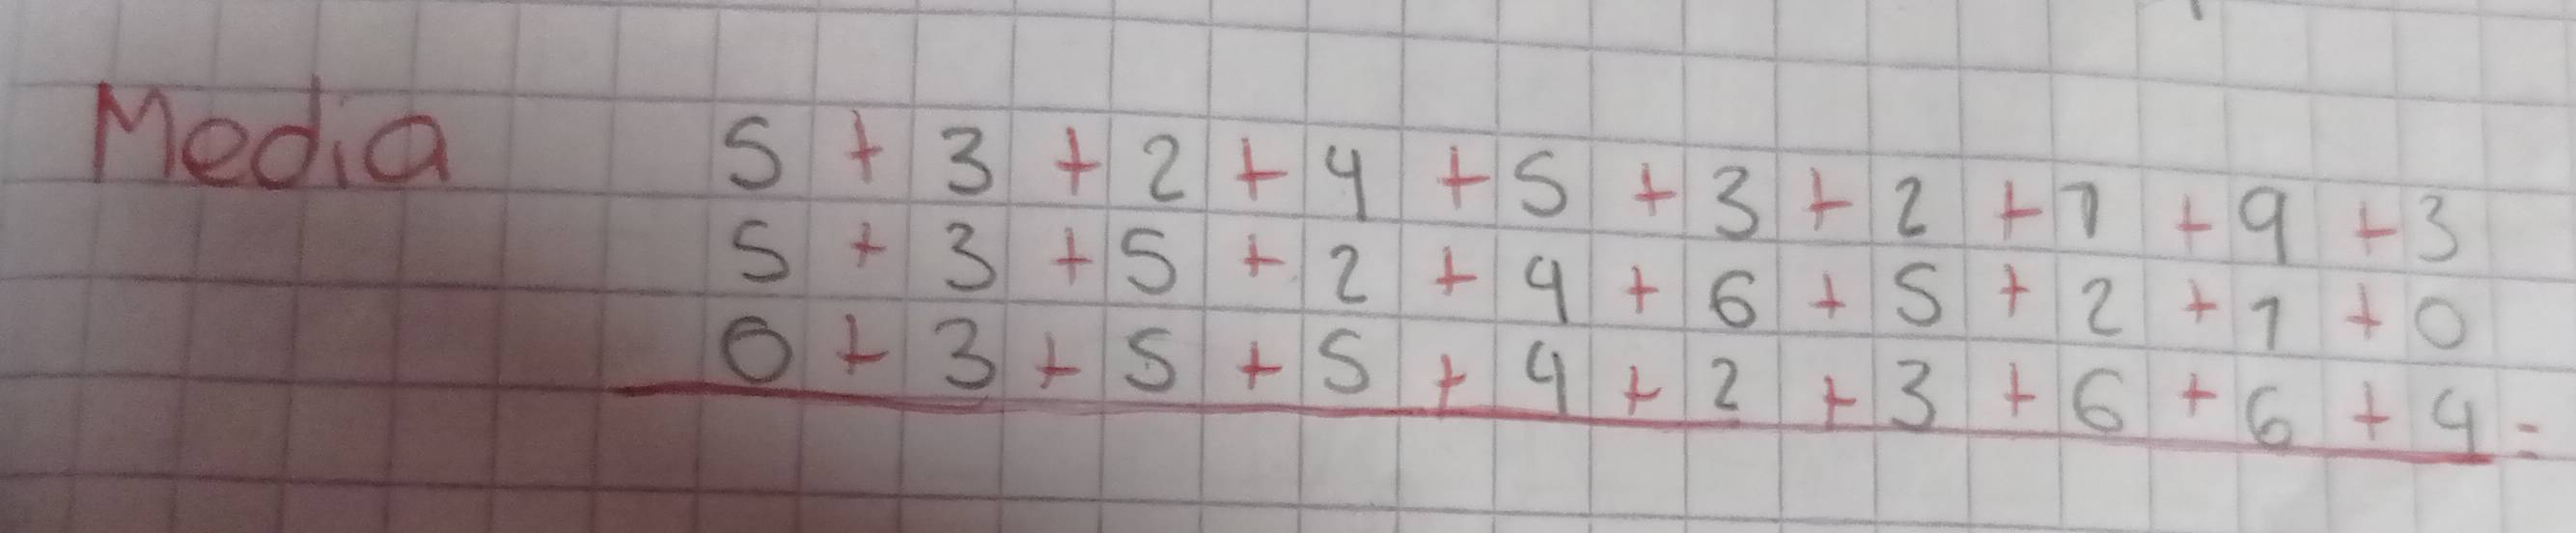 Media
5 + 3 + 2 + 4 + 5 + 3 + 2 + 1 + 9 + 3
5 + 3 + 5 + 2 + 4 + 6 + 5 + 2 + 1 + 0
0 + 3 + 5 + 5 + 4 + 2 + 3 + 6 + 6 + 4 =